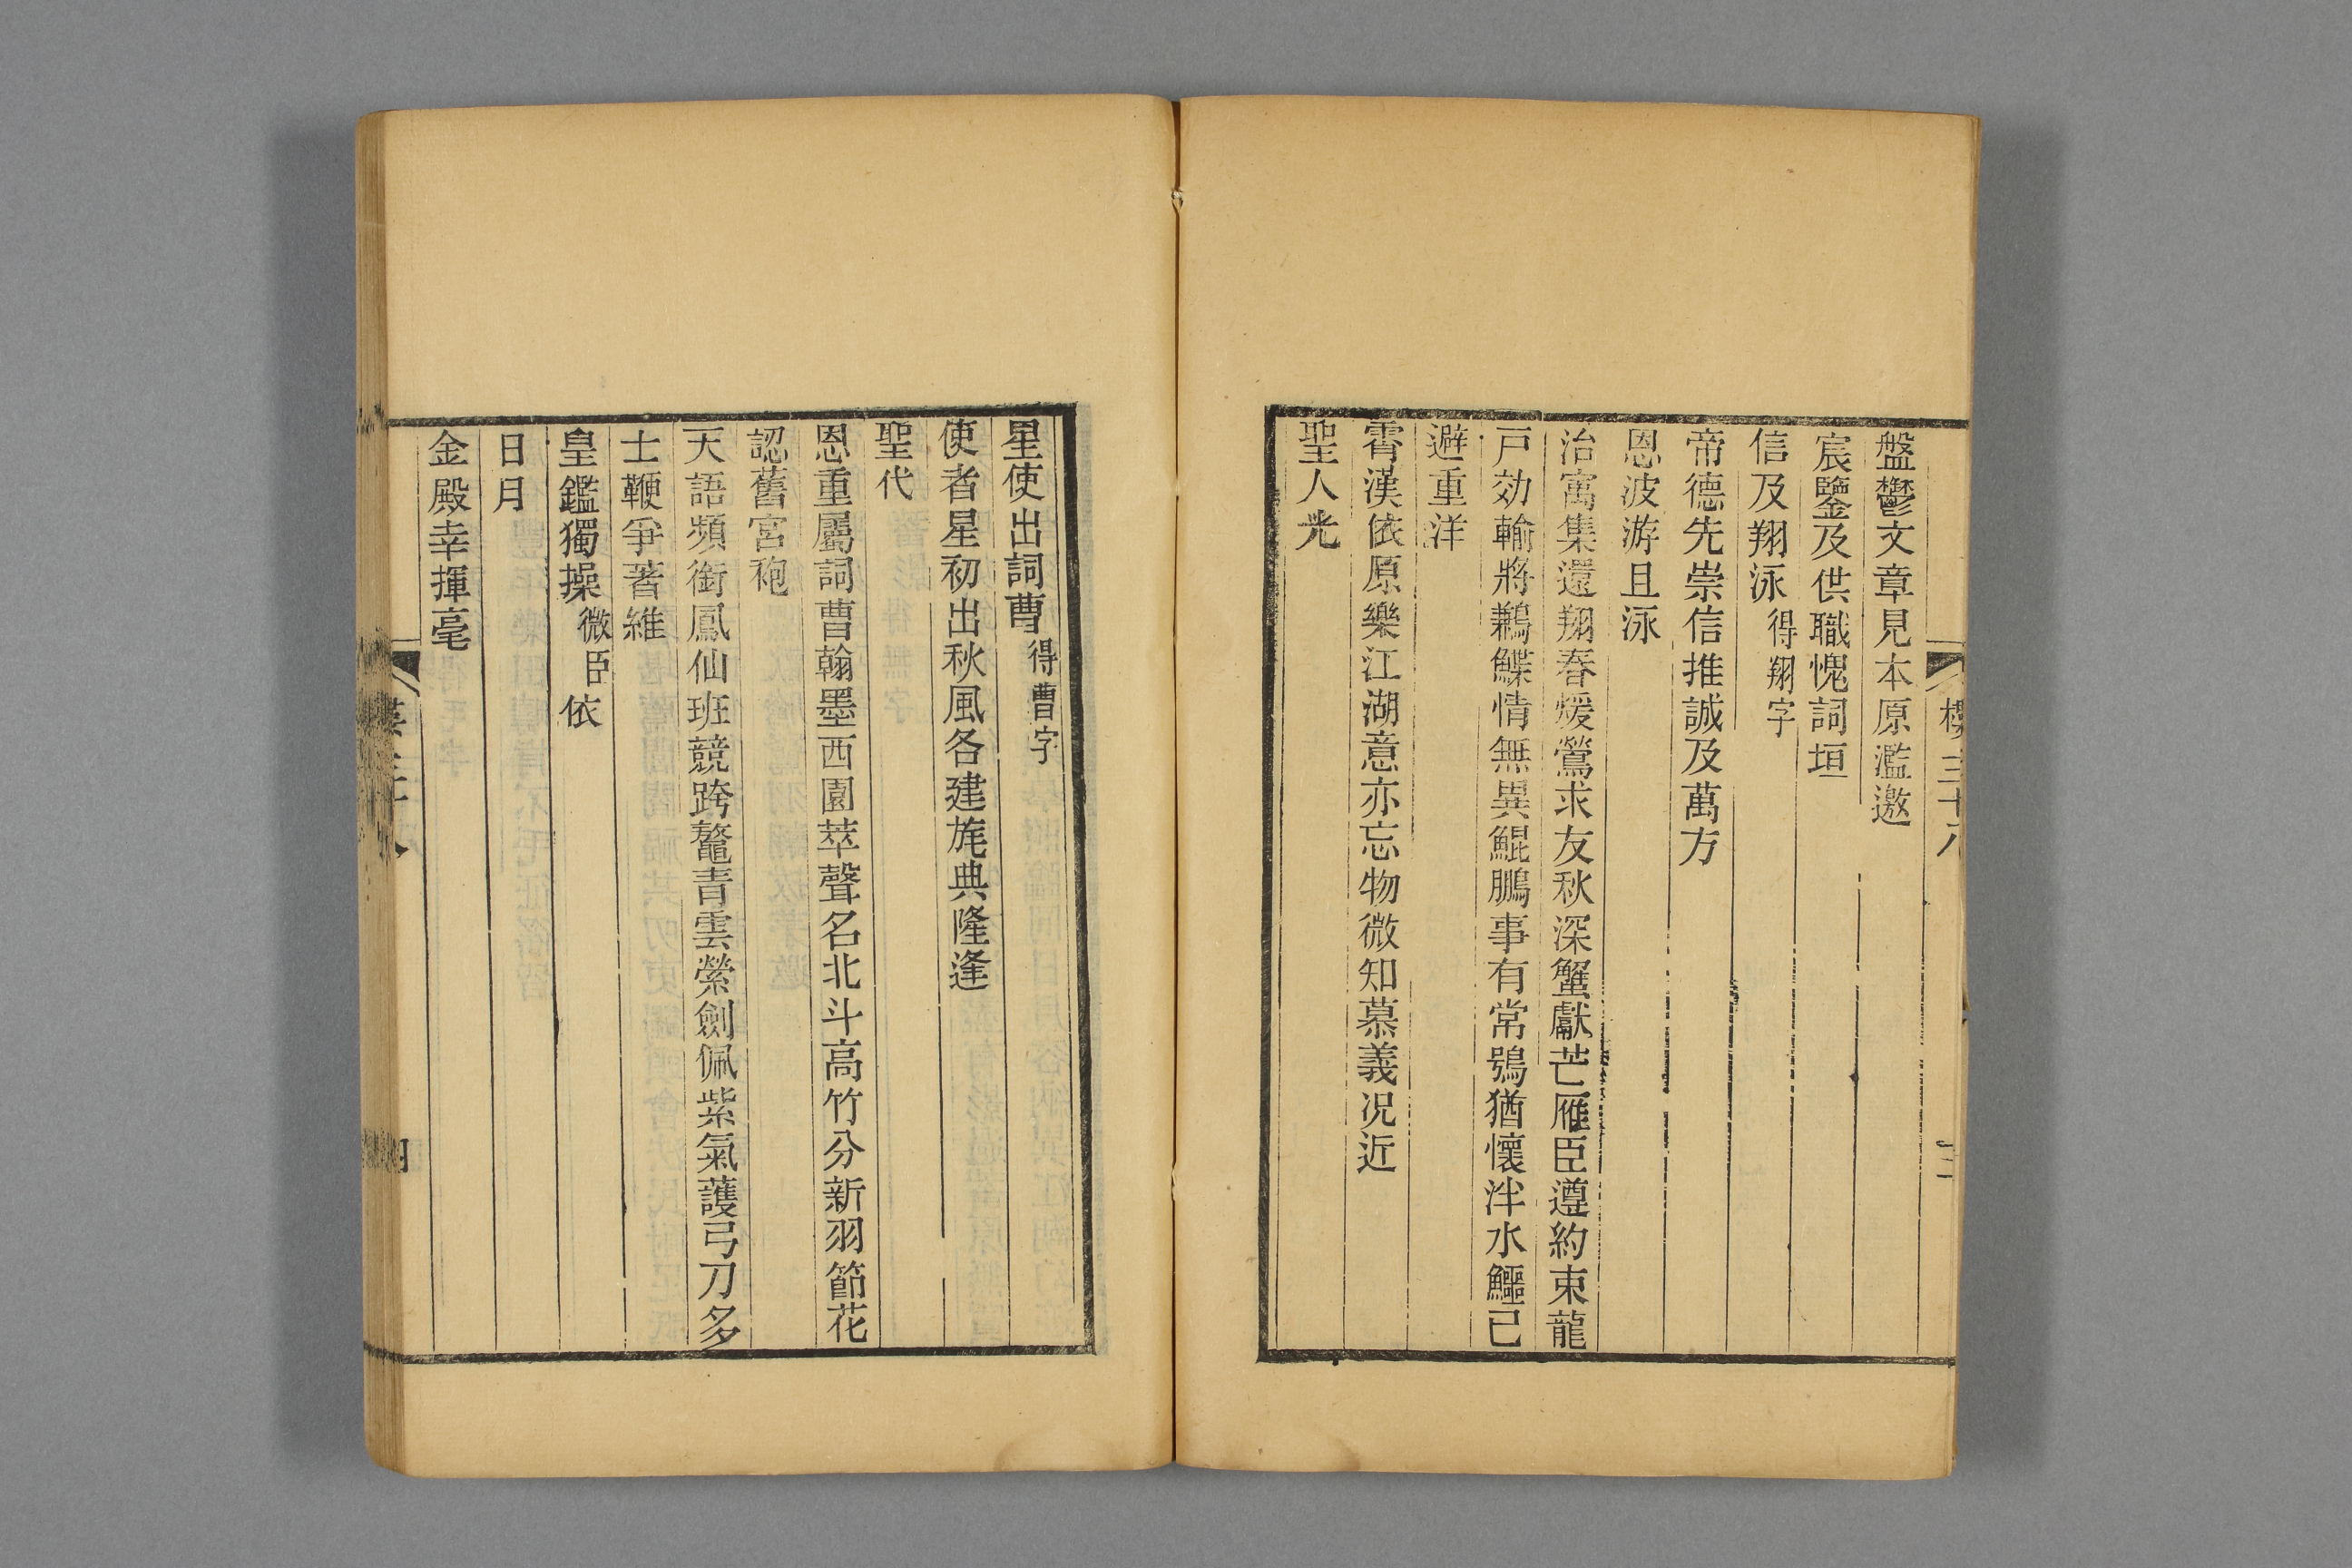 盤鬱文章見本原濫邀
宸鑒及供職愧詞垣
信及翔泳得翔字
帝德先崇信推誠及萬方
恩波游且泳
治寓集還翔春煖鶯求友秋深蟹獻芒雁臣遵約束龍
戸効輸將鶼鰈情無異鯤鵬事有常鴞猶懷泮水鱷已
避重洋
霄漢依原樂江湖意亦忘物微知慕義况近
聖人光
三十八
三
星使出詞曹得曹字
使者星初出秋風各建旄典隆逢
聖代
恩重屬詞曹翰墨西園萃聲名北斗高竹分新羽節花
認舊宮袍
天語頻銜鳳仙班競跨鼇青雲縈劍佩紫氣護弓刀多
士鞭爭著維
皇鑑獨操微臣依
日月
金殿幸揮毫